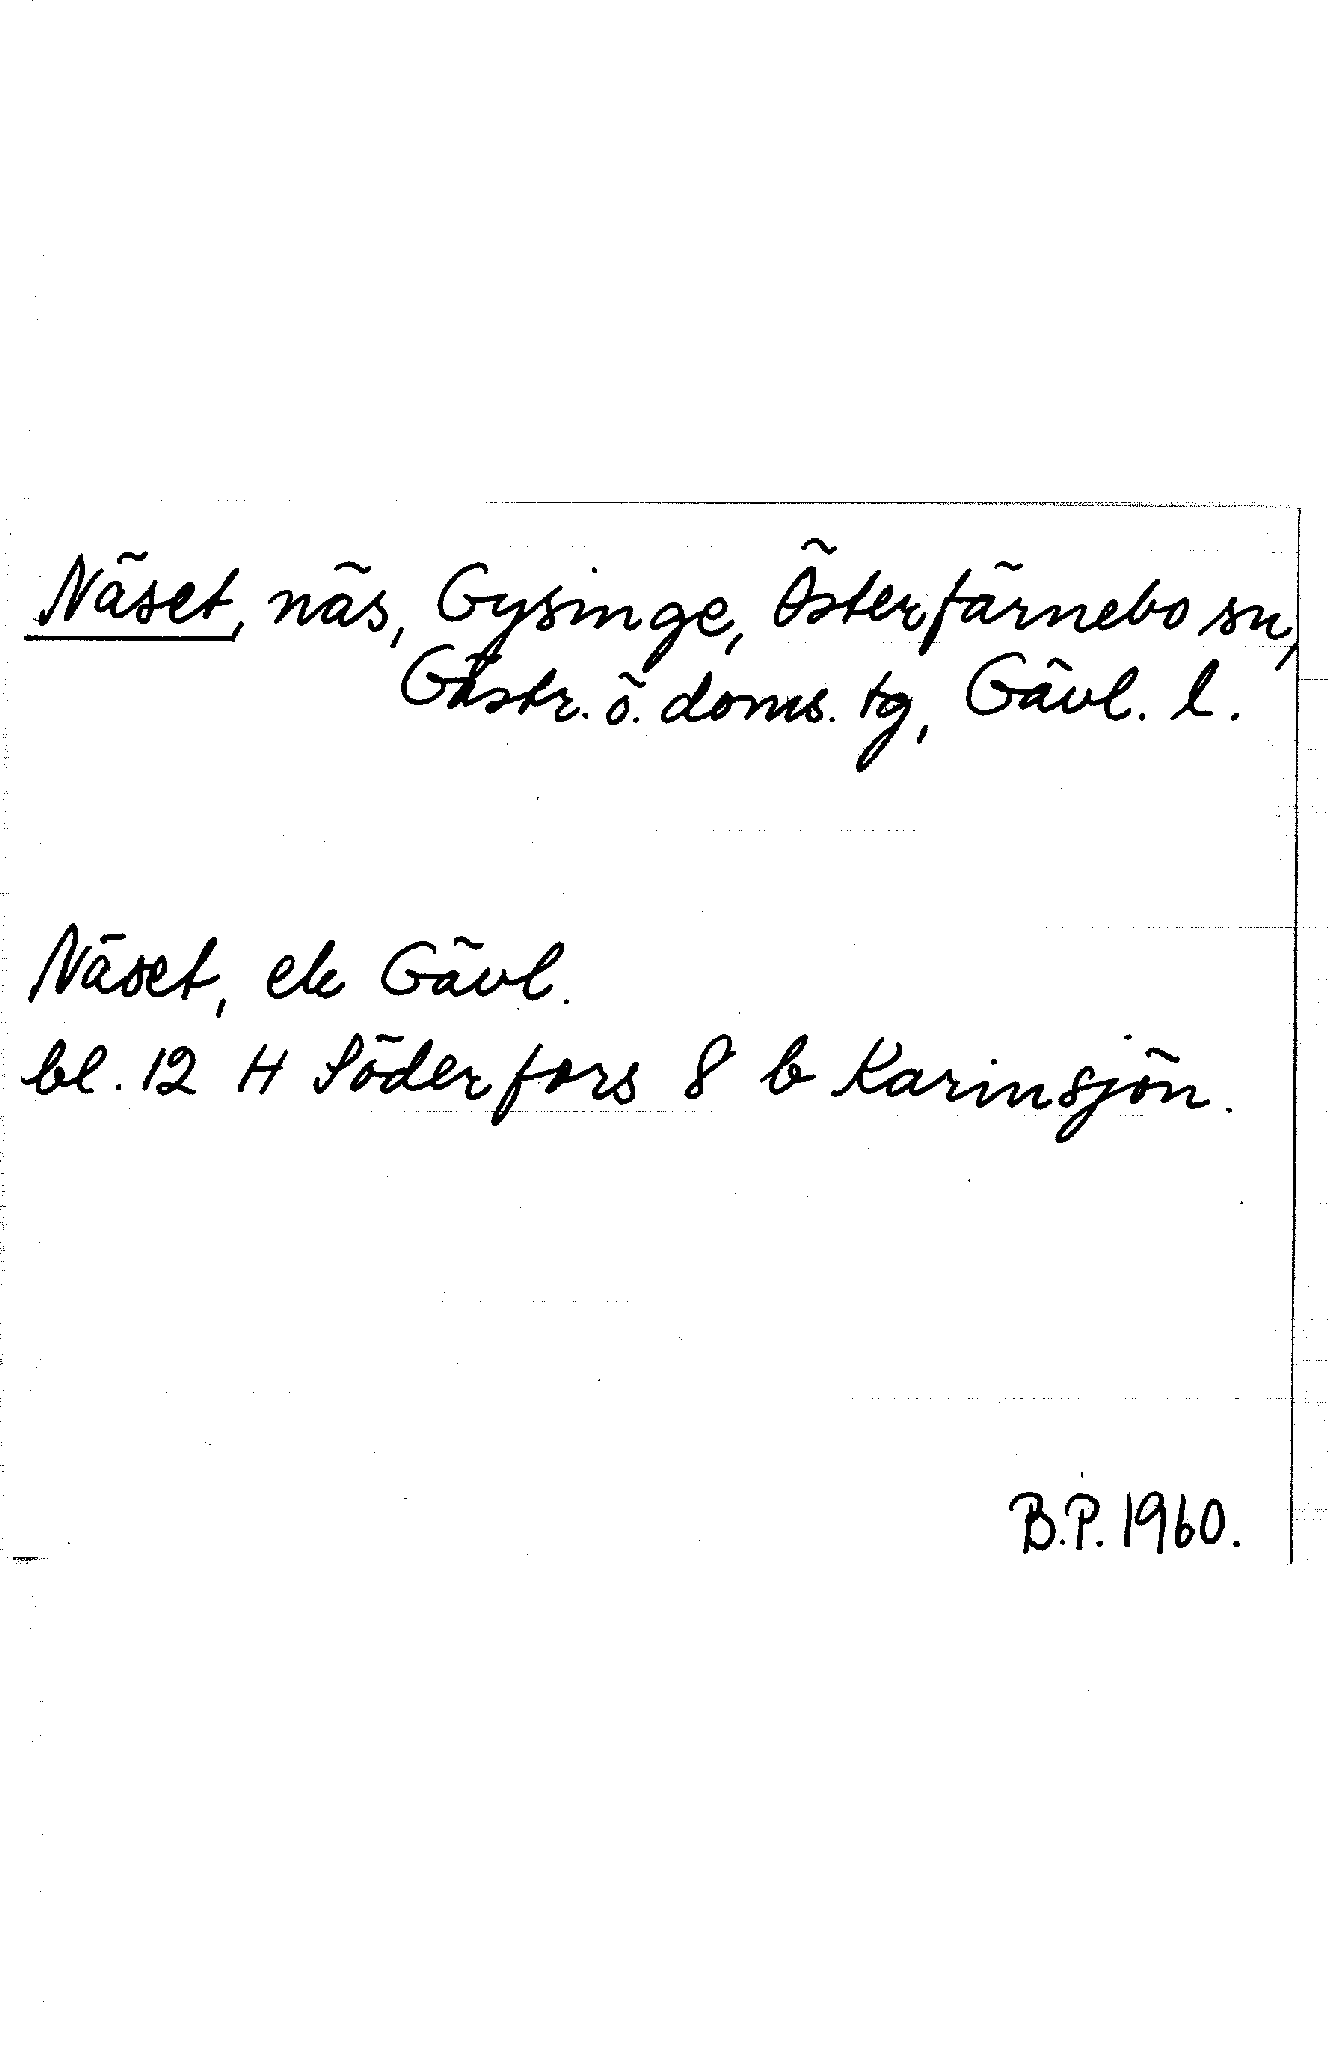 Näset, näs, Gysinge, Österfärnebo sn,
Gästr. ö. doms. tg, Gävl. l.
Näset, ek Gävl.
bl. 12 H Söderfors 8 b Karinsjön.
B.P. 1960.